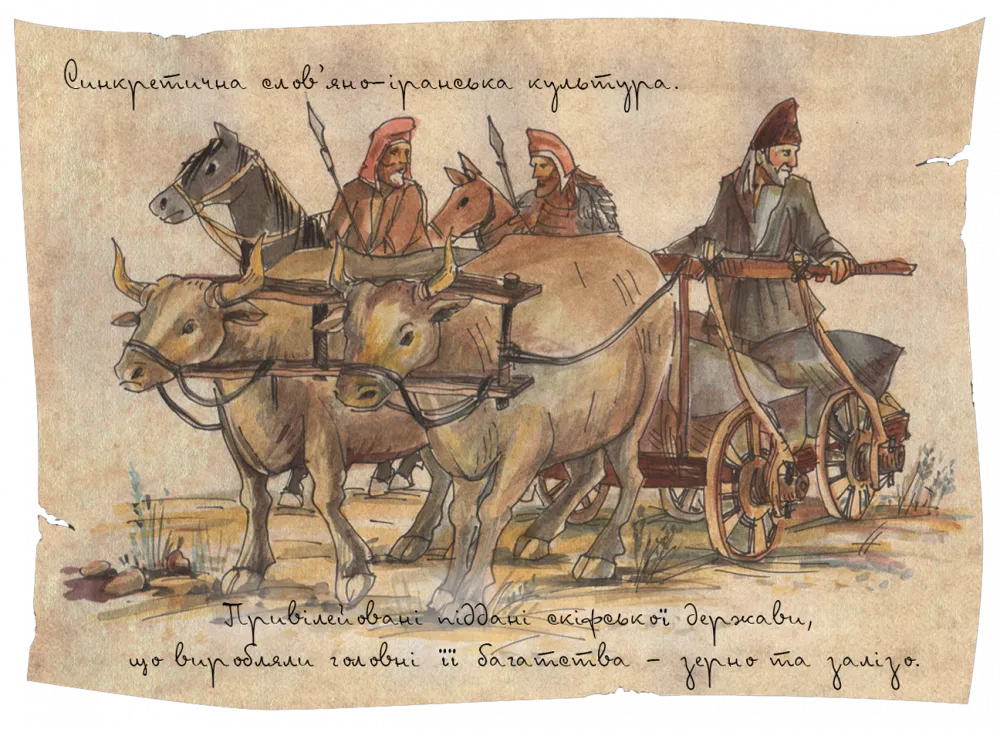 Синкретична слов'яно-іранська культура.
Привілейовані піддані скіфської держави,
що виробляли головні її багатства - зерно та залізо.